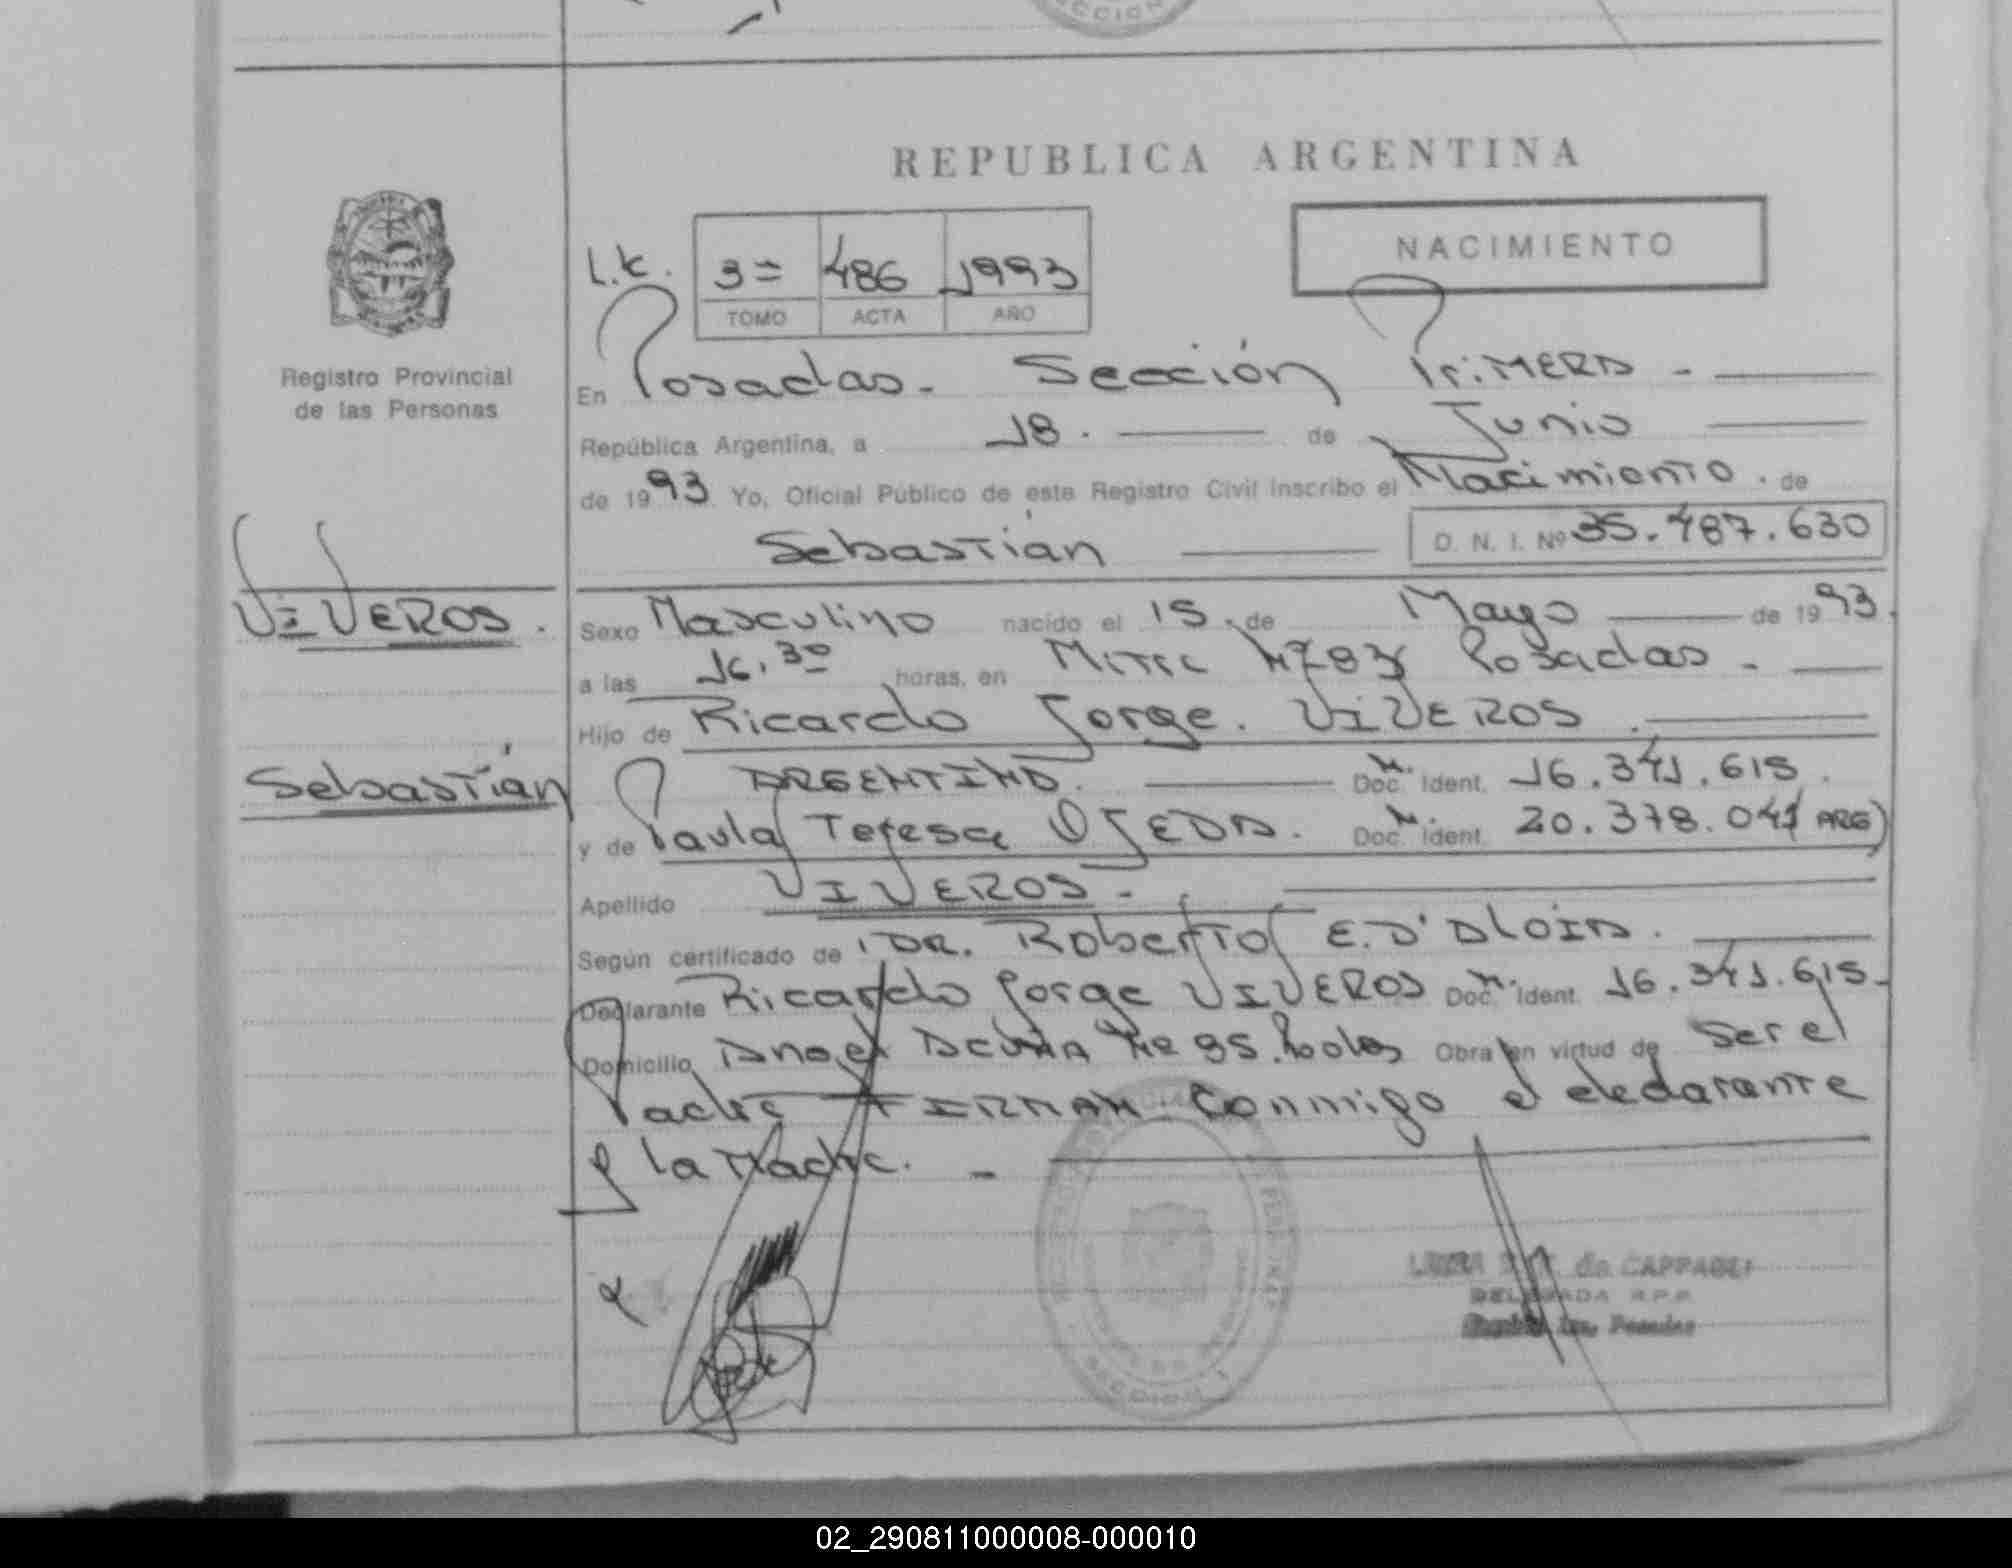 REPUBLICA ARGENTINA
NACIMIENTO
3= 486 1993
TOMO ACTA AÑO
Registro Provincial
de las Personas
En Posadas - Sección Primera -
República Argentina, a 18. de Junio
de 1993 Yo, Oficial Público de este Registro Civil inscribo el Nacimiento. de
Sebastián D. N. I. Nº 35.487.630
VIVEROS.
Sexo Masculino nacido el 15. de Mayo de 1993.
a las 16.30 horas, en Mitre Posadas -
Hijo de Ricardo Jorge. VIVEROS.
Sebastián
ARGENTINO. Doc. Ident. 16.341.615.
y de Paula Teresa OJEDA. Doc. Ident. 20.378.041 ARG)
Apellido VIVEROS -
Según certificado de DR. Roberto E. D'Aloia.
Declarante Ricardo Jorge VIVEROS Doc. Ident. 16.341.615-
Domicilio Angel Acuña Obra en virtud de ser el
Padre FIRMAN Conmigo el declarante
y la Madre. -
de CAPPAGLI
DELEGADA R.P.P.
Posadas
SECCION 1
02_290811000008-000010